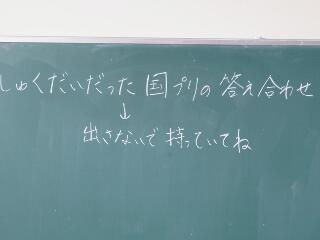 しゅくだいだった国プリの答え合わせ
↓
出さないで持っていてね